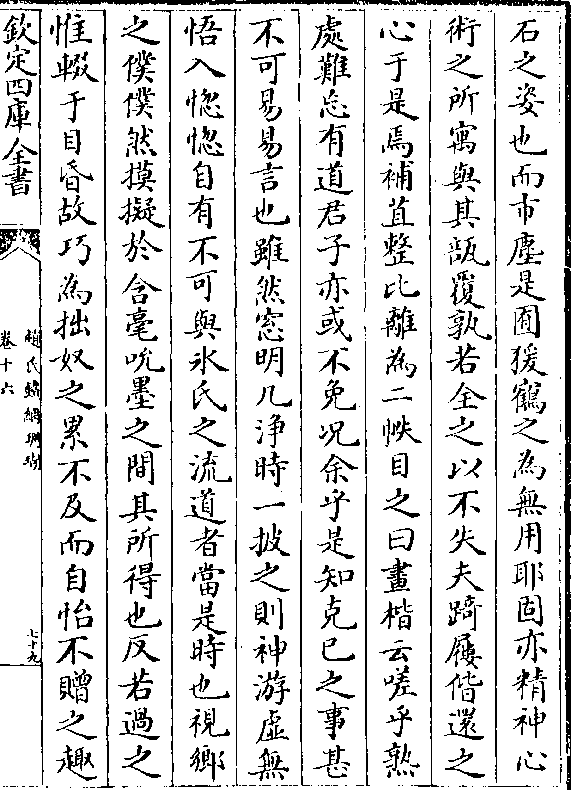 石之姿也而市塵是囿猨鶴之為無用耶固亦精神心
術之所寓與其瓿覆孰若全之以不失夫踦屨偕還之
心于是焉補苴整比離為二帙目之曰畫楷云嗟乎熟
處難忘有道君子亦或不免况余乎是知克己之事甚
不可易易言也雖然窓明几浄時一披之則神游虛無
悟入惚惚自有不可與氷氏之流道者當是時也視鄉
之僕僕然摸擬於含毫吮墨之間其所得也反若過之
惟輟于目昏故巧為拙奴之累不及而自怡不贈之趣
欽定四庫全書
趙氏鐵網珊瑚
卷十六
七十九